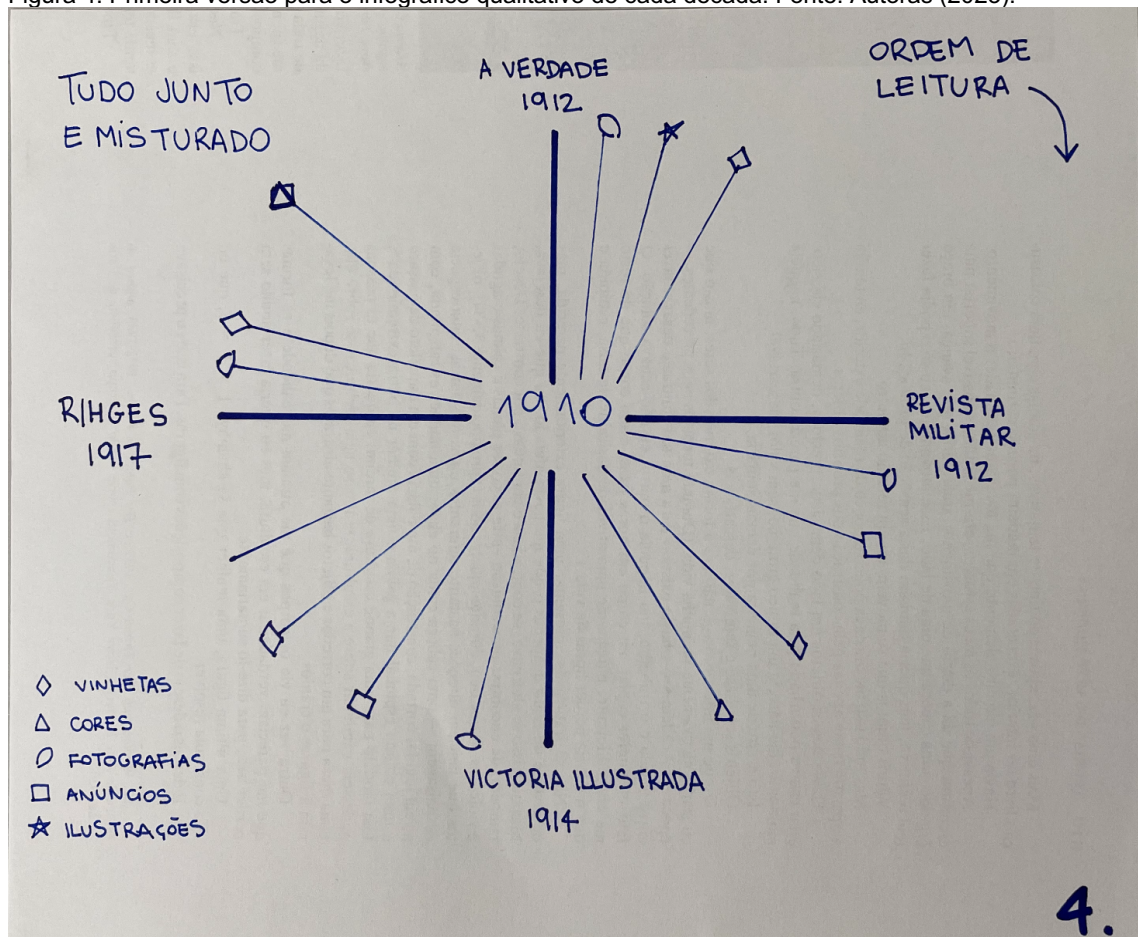 Figura 4. Primeira versão para o infográfico qualitativo de cada década. Fonte: Autoras
TUDO JUNTO
E MISTURADO
A VERDADE
1912
ORDEM DE
LEITURA
1910
R/HGES
1917
REVISTA
MILITAR
1912
VICTORIA ILLUSTRADA
1914
VINHETAS
CORES
FOTOGRAFIAS
ANÚNCIOS
ILUSTRAÇÕES
4.